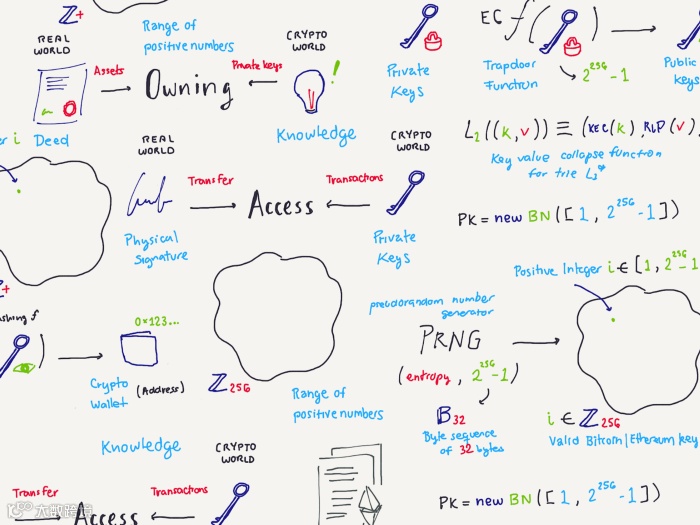 ℤ+
Range of
positive numbers
REAL
WORLD
Assets
Owning
Private keys
CRYPTO
WORLD
!
Knowledge
er i Deed
Private
Keys
EC f( )
Trapdoor
Function
2^256 -1
Public
keys
L₂((k,v)) ≡ (KEC(k), RLP(v)
Key value collapse function
for trie L₃*
REAL
WORLD
CRYPTO
WORLD
Transfer
Access
Transactions
Physical
Signature
Private
Keys
PK = new BN([1, 2^256 -1])
Positive Integer i ∈ [1, 2^256 -1
+
ashing f
)
0x123...
Crypto
Wallet (Address)
ℤ256
Range of
positive numbers
pseudorandom number
generator
PRNG
(entropy, 2^256 -1)
B32
Byte sequence
of 32 bytes
i ∈ ℤ256
Valid Bitcoin/Ethereum key
Knowledge
CRYPTO
WORLD
Transfer
Access
Transactions
PK = new BN([1, 2^256 -1])
大数跨境